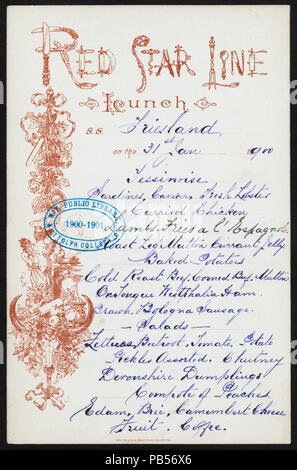 RED STAR LINE
Lunch
S.S. Friesland
on the 31st Jane 1900
Tessinoise
Sardines, Caviar, Fresh
Curried Chicken
Lamb's Fries a l'Espagnole
Roast Leg Mutton Currant Jelly
Baked Potatoes
Cold Roast Beef, Corned Beef, Mutton
Ox Tongue Westphalia Ham
Brawn, Bologna Sausage.
— Salads —
Lettuce, Beetroot, Tomato, Potato
Pickles Assorted, Chutney
Devonshire Dumplings
Compote of Peaches
Edam, Brie, Camembert Cheese
Fruit. Coffee.
NEW-PUBLIC LIBRARY
1900-1901
alamy
Image ID: PB56X6
www.alamy.com